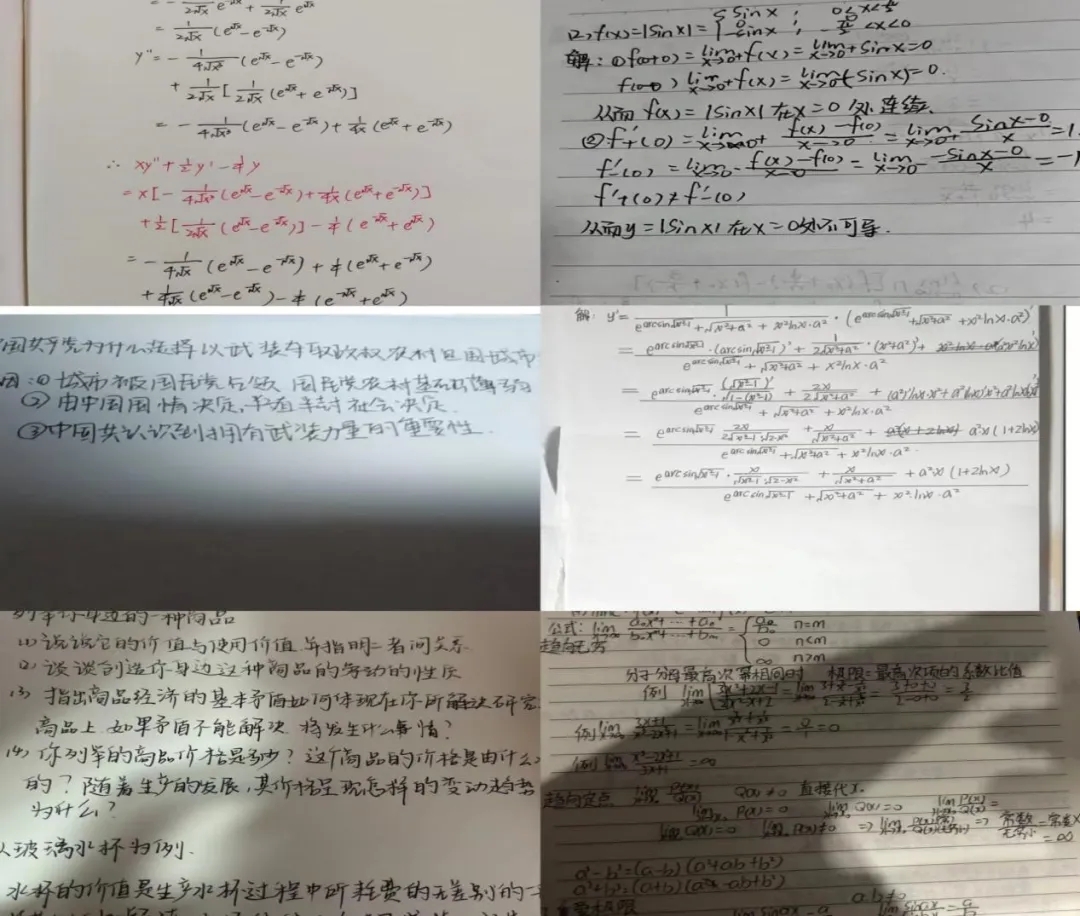 = -\frac{1}{2\sqrt{x}}e^{-\sqrt{x}} + \frac{1}{2\sqrt{x}}e^{\sqrt{x}}
= \frac{1}{2\sqrt{x}}(e^{\sqrt{x}} - e^{-\sqrt{x}})
y'' = -\frac{1}{4\sqrt{x^3}}(e^{\sqrt{x}} - e^{-\sqrt{x}})
+ \frac{1}{2\sqrt{x}}[\frac{1}{2\sqrt{x}}(e^{\sqrt{x}} + e^{-\sqrt{x}})]
= -\frac{1}{4\sqrt{x^3}}(e^{\sqrt{x}} - e^{-\sqrt{x}}) + \frac{1}{4x}(e^{\sqrt{x}} + e^{-\sqrt{x}})
∴ xy'' + \frac{1}{2}y' - \frac{1}{4}y
= x[-\frac{1}{4\sqrt{x^3}}(e^{\sqrt{x}} - e^{-\sqrt{x}}) + \frac{1}{4x}(e^{\sqrt{x}} + e^{-\sqrt{x}})]
+ \frac{1}{2}[\frac{1}{2\sqrt{x}}(e^{\sqrt{x}} - e^{-\sqrt{x}})] - \frac{1}{4}(e^{-\sqrt{x}} + e^{\sqrt{x}})
= -\frac{1}{4\sqrt{x}}(e^{\sqrt{x}} - e^{-\sqrt{x}}) + \frac{1}{4}(e^{\sqrt{x}} + e^{-\sqrt{x}})
+ \frac{1}{4\sqrt{x}}(e^{\sqrt{x}} - e^{-\sqrt{x}}) - \frac{1}{4}(e^{-\sqrt{x}} + e^{\sqrt{x}})
(2) f(x)=|sinx|=
解:① f(0+0)=lim x→0+ f(x)=lim x→0+ sinx=0
f(0-0) lim x→0+ f(x)=lim x→0 (-sinx)=0.
从而 f(x)=|sinx| 在x=0 处 连续.
② f'+(0)=lim x→0+ \frac{f(x)-f(0)}{x-0} = lim x→0+ \frac{sinx-0}{x} = 1.
f'-(0)=lim x→0- \frac{f(x)-f(0)}{x-0} = lim x→0- \frac{-sinx-0}{x} = -1
f'+(0)≠f'-(0)
从而y=|sinx| 在x=0处不可导.
国共产党为什么选择以武装夺取政权农村包围城市
因:① 城市被国民党占领 国民党农村
② 由中国国情决定,半殖半封社会决定.
③中国共认识到拥有武装力量的重要性.
解: y'= \frac{1}{e^{arcsin\sqrt{x^2-1}}+\sqrt{x^2+a^2}+x^2lnx·a^2}·(e^{arcsin\sqrt{x^2-1}}+\sqrt{x^2+a^2}+x^2lnx·a^2)'
= \frac{e^{arcsin\sqrt{x^2-1}}·(arcsin\sqrt{x^2-1})'+\frac{1}{2\sqrt{x^2+a^2}}·(x^2+a^2)'+(a^2x^2lnx)'}{e^{arcsin\sqrt{x^2-1}}+\sqrt{x^2+a^2}+x^2lnx·a^2}
= \frac{e^{arcsin\sqrt{x^2-1}}·\frac{(\sqrt{x^2-1})'}{\sqrt{1-(x^2-1)}}+\frac{2x}{2\sqrt{x^2+a^2}}+}{e^{arcsin\sqrt{x^2-1}}+\sqrt{x^2+a^2}+x^2lnx·a^2}
= \frac{e^{arcsin\sqrt{x^2-1}}·\frac{2x}{2\sqrt{x^2-1}·\sqrt{2-x^2}}+\frac{x}{\sqrt{x^2+a^2}}+a^2x(1+2lnx)}{e^{arcsin\sqrt{x^2-1}}+\sqrt{x^2+a^2}+x^2lnx·a^2}
= \frac{e^{arcsin\sqrt{x^2-1}}·\frac{x}{\sqrt{x^2-1}·\sqrt{2-x^2}}+\frac{x}{\sqrt{x^2+a^2}}+a^2x(1+2lnx)}{e^{arcsin\sqrt{x^2-1}}+\sqrt{x^2+a^2}+x^2·lnx·a^2}
列举你身边的一种商品
(1) 说说它的价值与使用价值 并指明二者间关系
(2) 谈谈创造你身边这种商品的劳动的性质
(3) 指出商品经济的基本矛盾如何体现在你所
商品上. 如果矛盾不能解决 将发生什么事情?
(4) 你列举的商品价格是多少? 这个商品的价格是由什么
的? 随着生产的发展,其价格呈现怎样的变动趋势
为什么?
以玻璃水杯为例.
水杯的价值是生产水杯过程中所耗费的无差别的
公式: lim
趋向无穷
n=m
0 n<m
∞ n>m
分子分母最高次幂相同时 极限=最高次项的系数比值
例 lim
例 lim = 0
例 lim \frac{x^3-2x+1}{3x+1} = ∞
趋向定点 lim \frac{P(x)}{Q(x)} Q(x)≠0 直接代入.
lim P(x)=0 lim Q(x)=0 lim \frac{P(x)}{Q(x)}=
lim Q(x)=0 lim P(x)≠0 ⇒
= ∞
a³-b³=(a-b)(a²+ab+b²)
a³+b³=(a+b)(a²-ab+b²)
重要极限